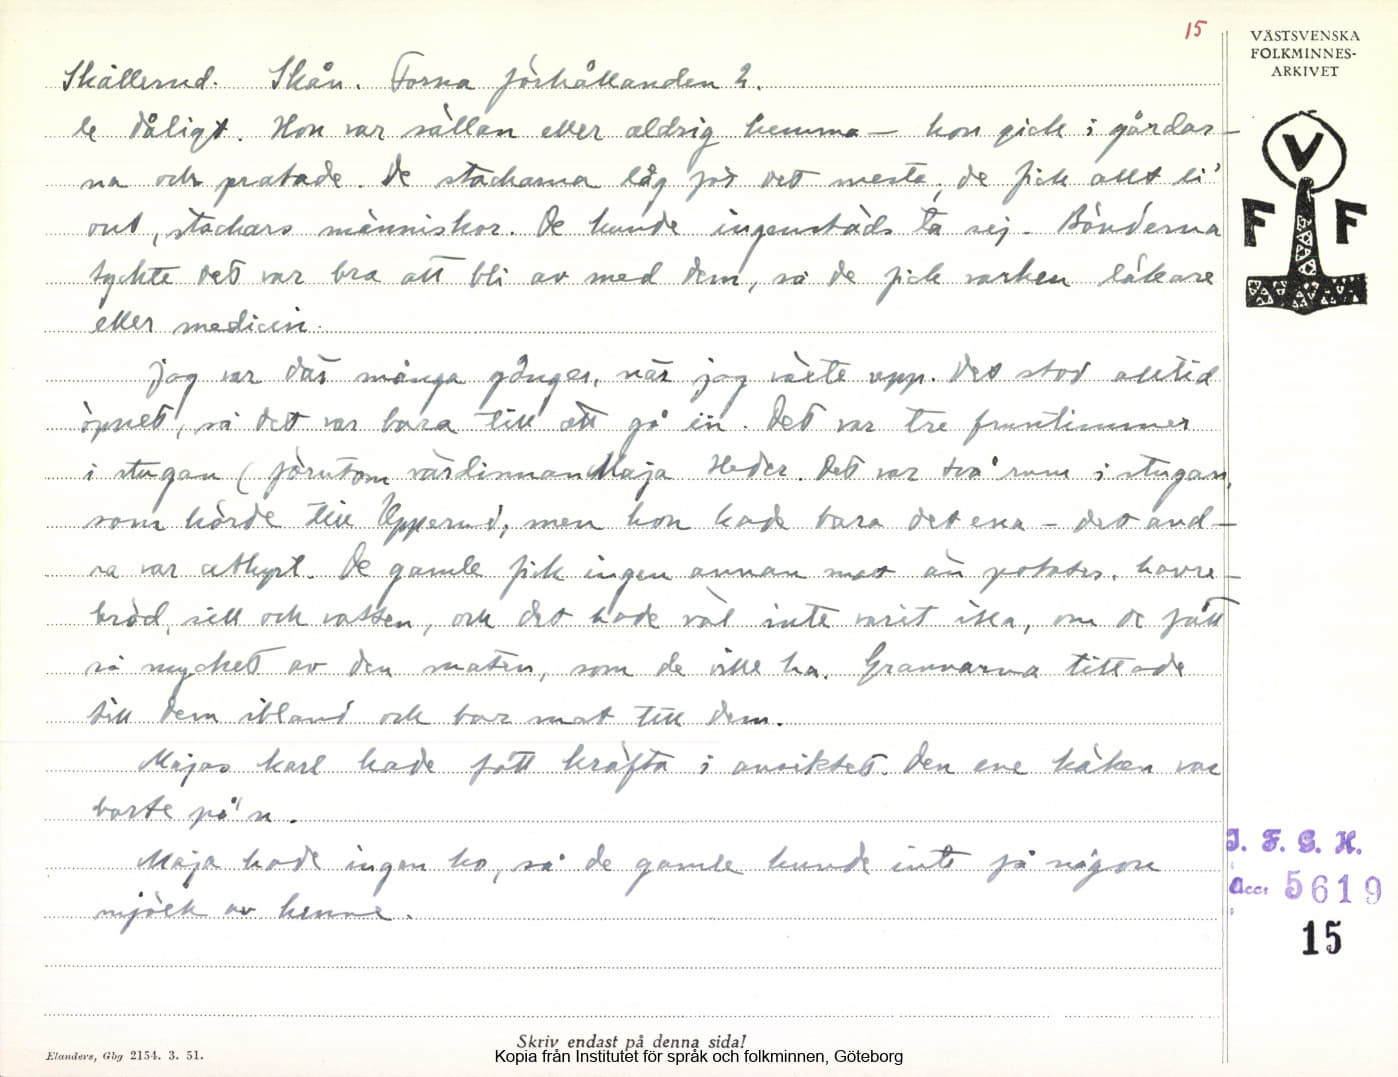 15
VÄSTSVENSKA
FOLKMINNES-
ARKIVET
V
F F
Skållerud. Skån. Forna förhållanden 2.
le dåligt. Hon var sällan eller aldrig hemma – hon gick i gårdar-
na och pratade. De stackarna låg för det mesta, de fick allt li'
ont, stackars människor. De kunde ingenstäds ta sej. Bönderna
tyckte det var bra att bli av med dem, så de fick varken läkare
eller medicin.
Jag var där många gånger, när jag växte upp. Det stod alltid
öpnet, så det var bara till att gå in. Det var tre fruntimmer
i stugan (förutom värdinnan Maja Heder. Det var två rum i stugan,
som hörde till Upperud, men hon hade bara det ena – det and-
ra var uthyrt. De gamle fick ingen annan mat än potates, havre-
bröd, sill och vatten, och det hade väl inte varit illa, om de fått
så mycket av den maten, som de ville ha. Grannarna tittade
till dem ibland och bar mat till dem.
Majas karl hade fått kräfta i ansiktet. Den ene käken var
borte på'n.
Maja hade ingen ko, så de gamle kunde inte få någon
mjölk av henne.
I. F. G. H.
Acc: 5619
15
Skriv endast på denna sida!
Elanders, Gbg 2154. 3. 51.
Kopia från Institutet för språk och folkminnen, Göteborg